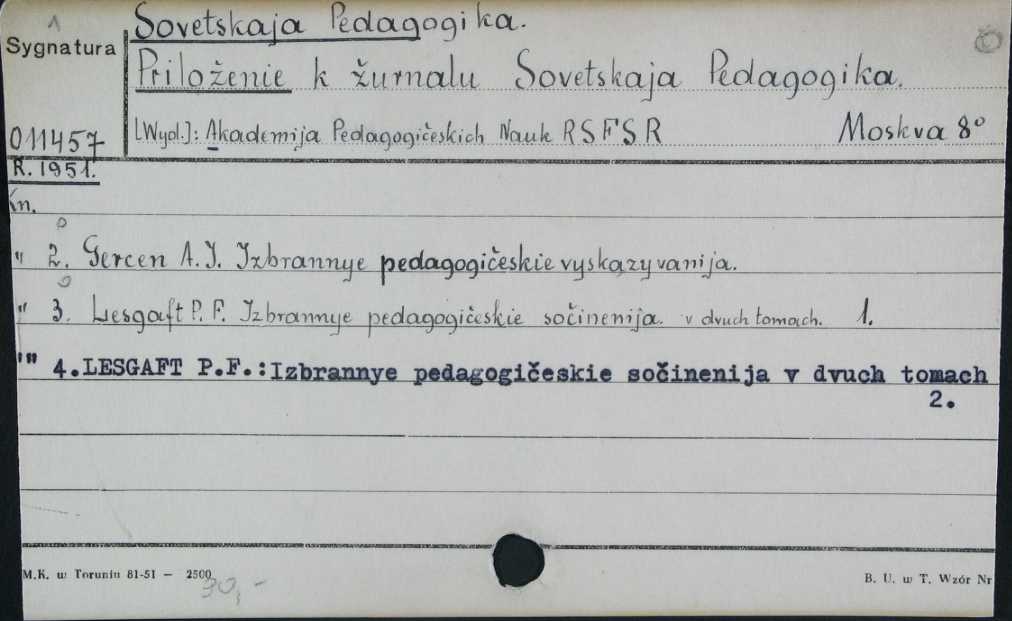 Sovetskaja Pedagogika.
Sygnatura
Priloženie k žurnalu Sovetskaja Pedagogika.
011457
[Wyd.]: Akademija Pedagogičeskich Nauk RSFSR Moskva 8°
R. 1951.
n.
" 2. Gercen A.I. Izbrannye pedagogičeskie vyskazyvanija.
" 3. Lesgaft P.F. Izbrannye pedagogičeskie sočinenija. v dvuch tomach. 1.
" 4. LESGAFT P.F.: Izbrannye pedagogičeskie sočinenija v dvuch tomach
2.
M.K. w Toruniu 81-51 — 2500
30,-
B. U. w T. Wzór Nr